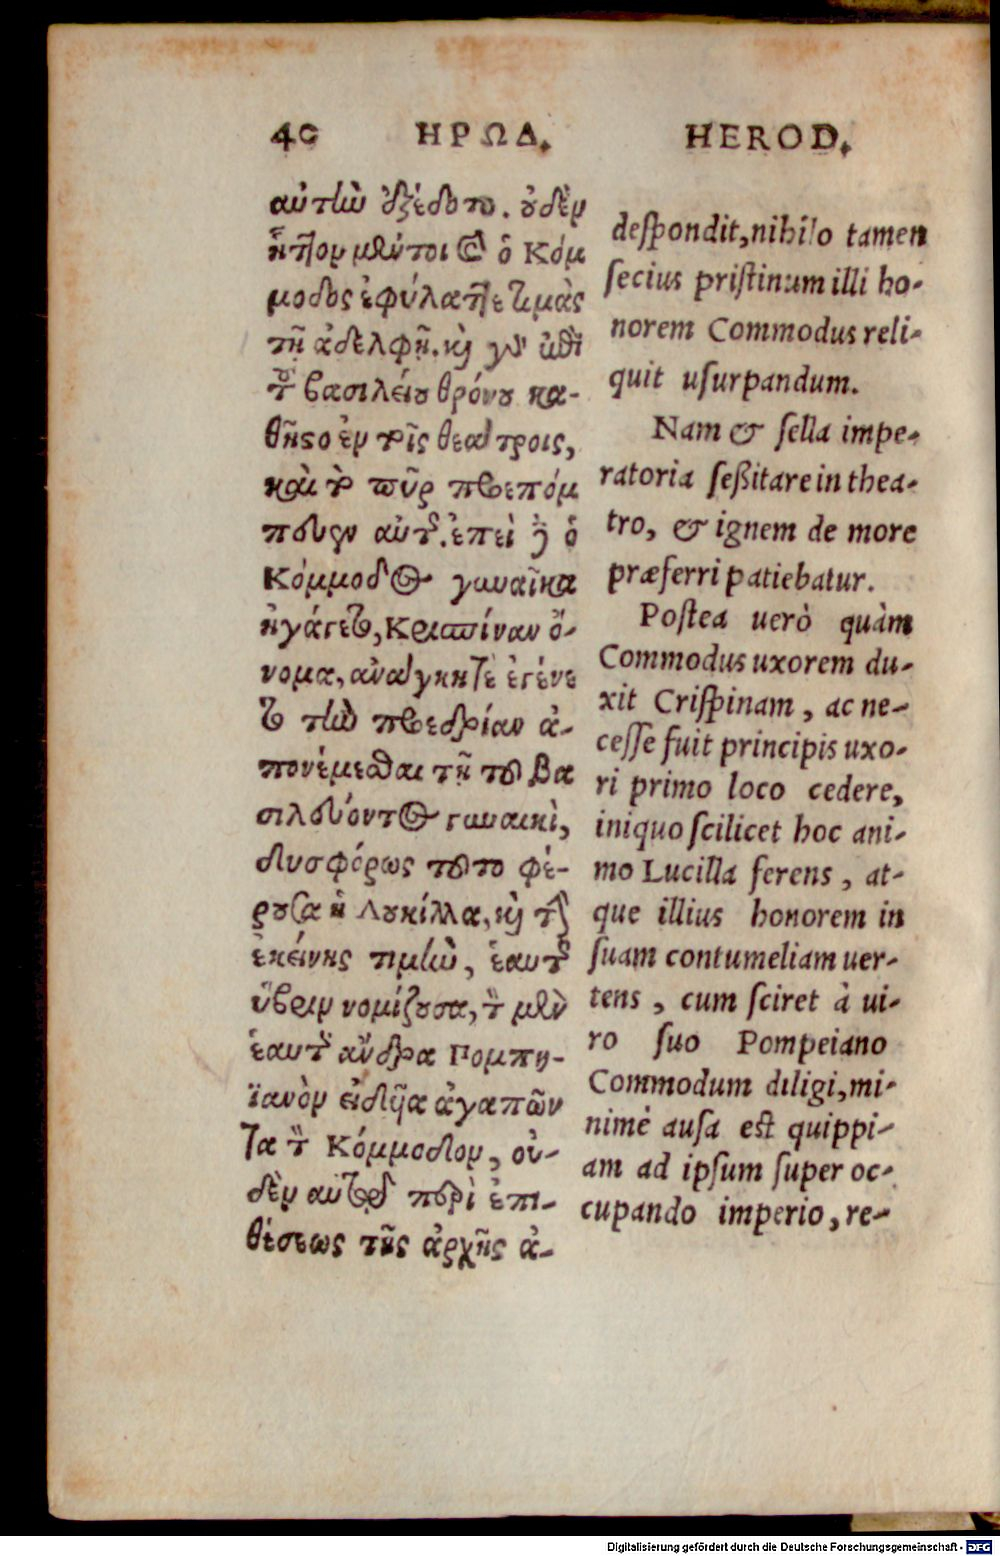 40 ΗΡΩΔ. HEROD.
αὐτὴν ἐξέδοτο. οὐδὲν
ἧττον μέντοι καὶ ὁ Κόμ
μοδος ἐφύλαττε τιμὰς
τῇ ἀδελφῇ. καὶ γὰρ ἐπὶ
τοῦ βασιλείου θρόνου κα-
θῆστο ἐν τοῖς θεάτροις,
καὶ τὸ πῦρ προεπόμ
πευεν αὐτῆς. ἐπεὶ δὲ ὁ
Κόμμοδος γυναῖκα
ἠγάγετο, Κρισπίναν ὄ-
νομα, ἀνάγκη τε ἐγένε
το τὴν προεδρίαν ἀ-
πονέμεσθαι τῇ τοῦ βα
σιλεύοντος γυναικὶ,
δυσφόρως τοῦτο φέ-
ρουσα ἡ Λουκίλλα, καὶ τὴν
ἐκείνης τιμὴν, ἑαυτῆς
ὕβριν νομίζουσα, τὸν μὲν
ἑαυτῆς ἄνδρα Πομπη-
ϊανὸν εἰδυῖα ἀγαπῶν
τα τὸν Κόμμοδον, οὐ-
δὲν αὐτῷ περὶ ἐπι-
θέσεως τῆς ἀρχῆς ἀ-
deſpondit, nihilo tamen
ſecius priſtinum illi ho-
norem Commodus reli-
quit uſurpandum.
Nam & ſella impe-
ratoria ſeßitare in thea-
tro, & ignem de more
præferri patiebatur.
Poſtea uerò quàm
Commodus uxorem du-
xit Criſpinam, ac ne-
ceſſe fuit principis uxo-
ri primo loco cedere,
iniquo ſcilicet hoc ani-
mo Lucilla ferens, at-
que illius honorem in
ſuam contumeliam uer-
tens, cum ſciret à ui-
ro ſuo Pompeiano
Commodum diligi, mi-
nimè auſa est quippi-
am ad ipſum ſuper oc-
cupando imperio, re-
Digitalisierung gefördert durch die Deutsche Forschungsgemeinschaft - DFG